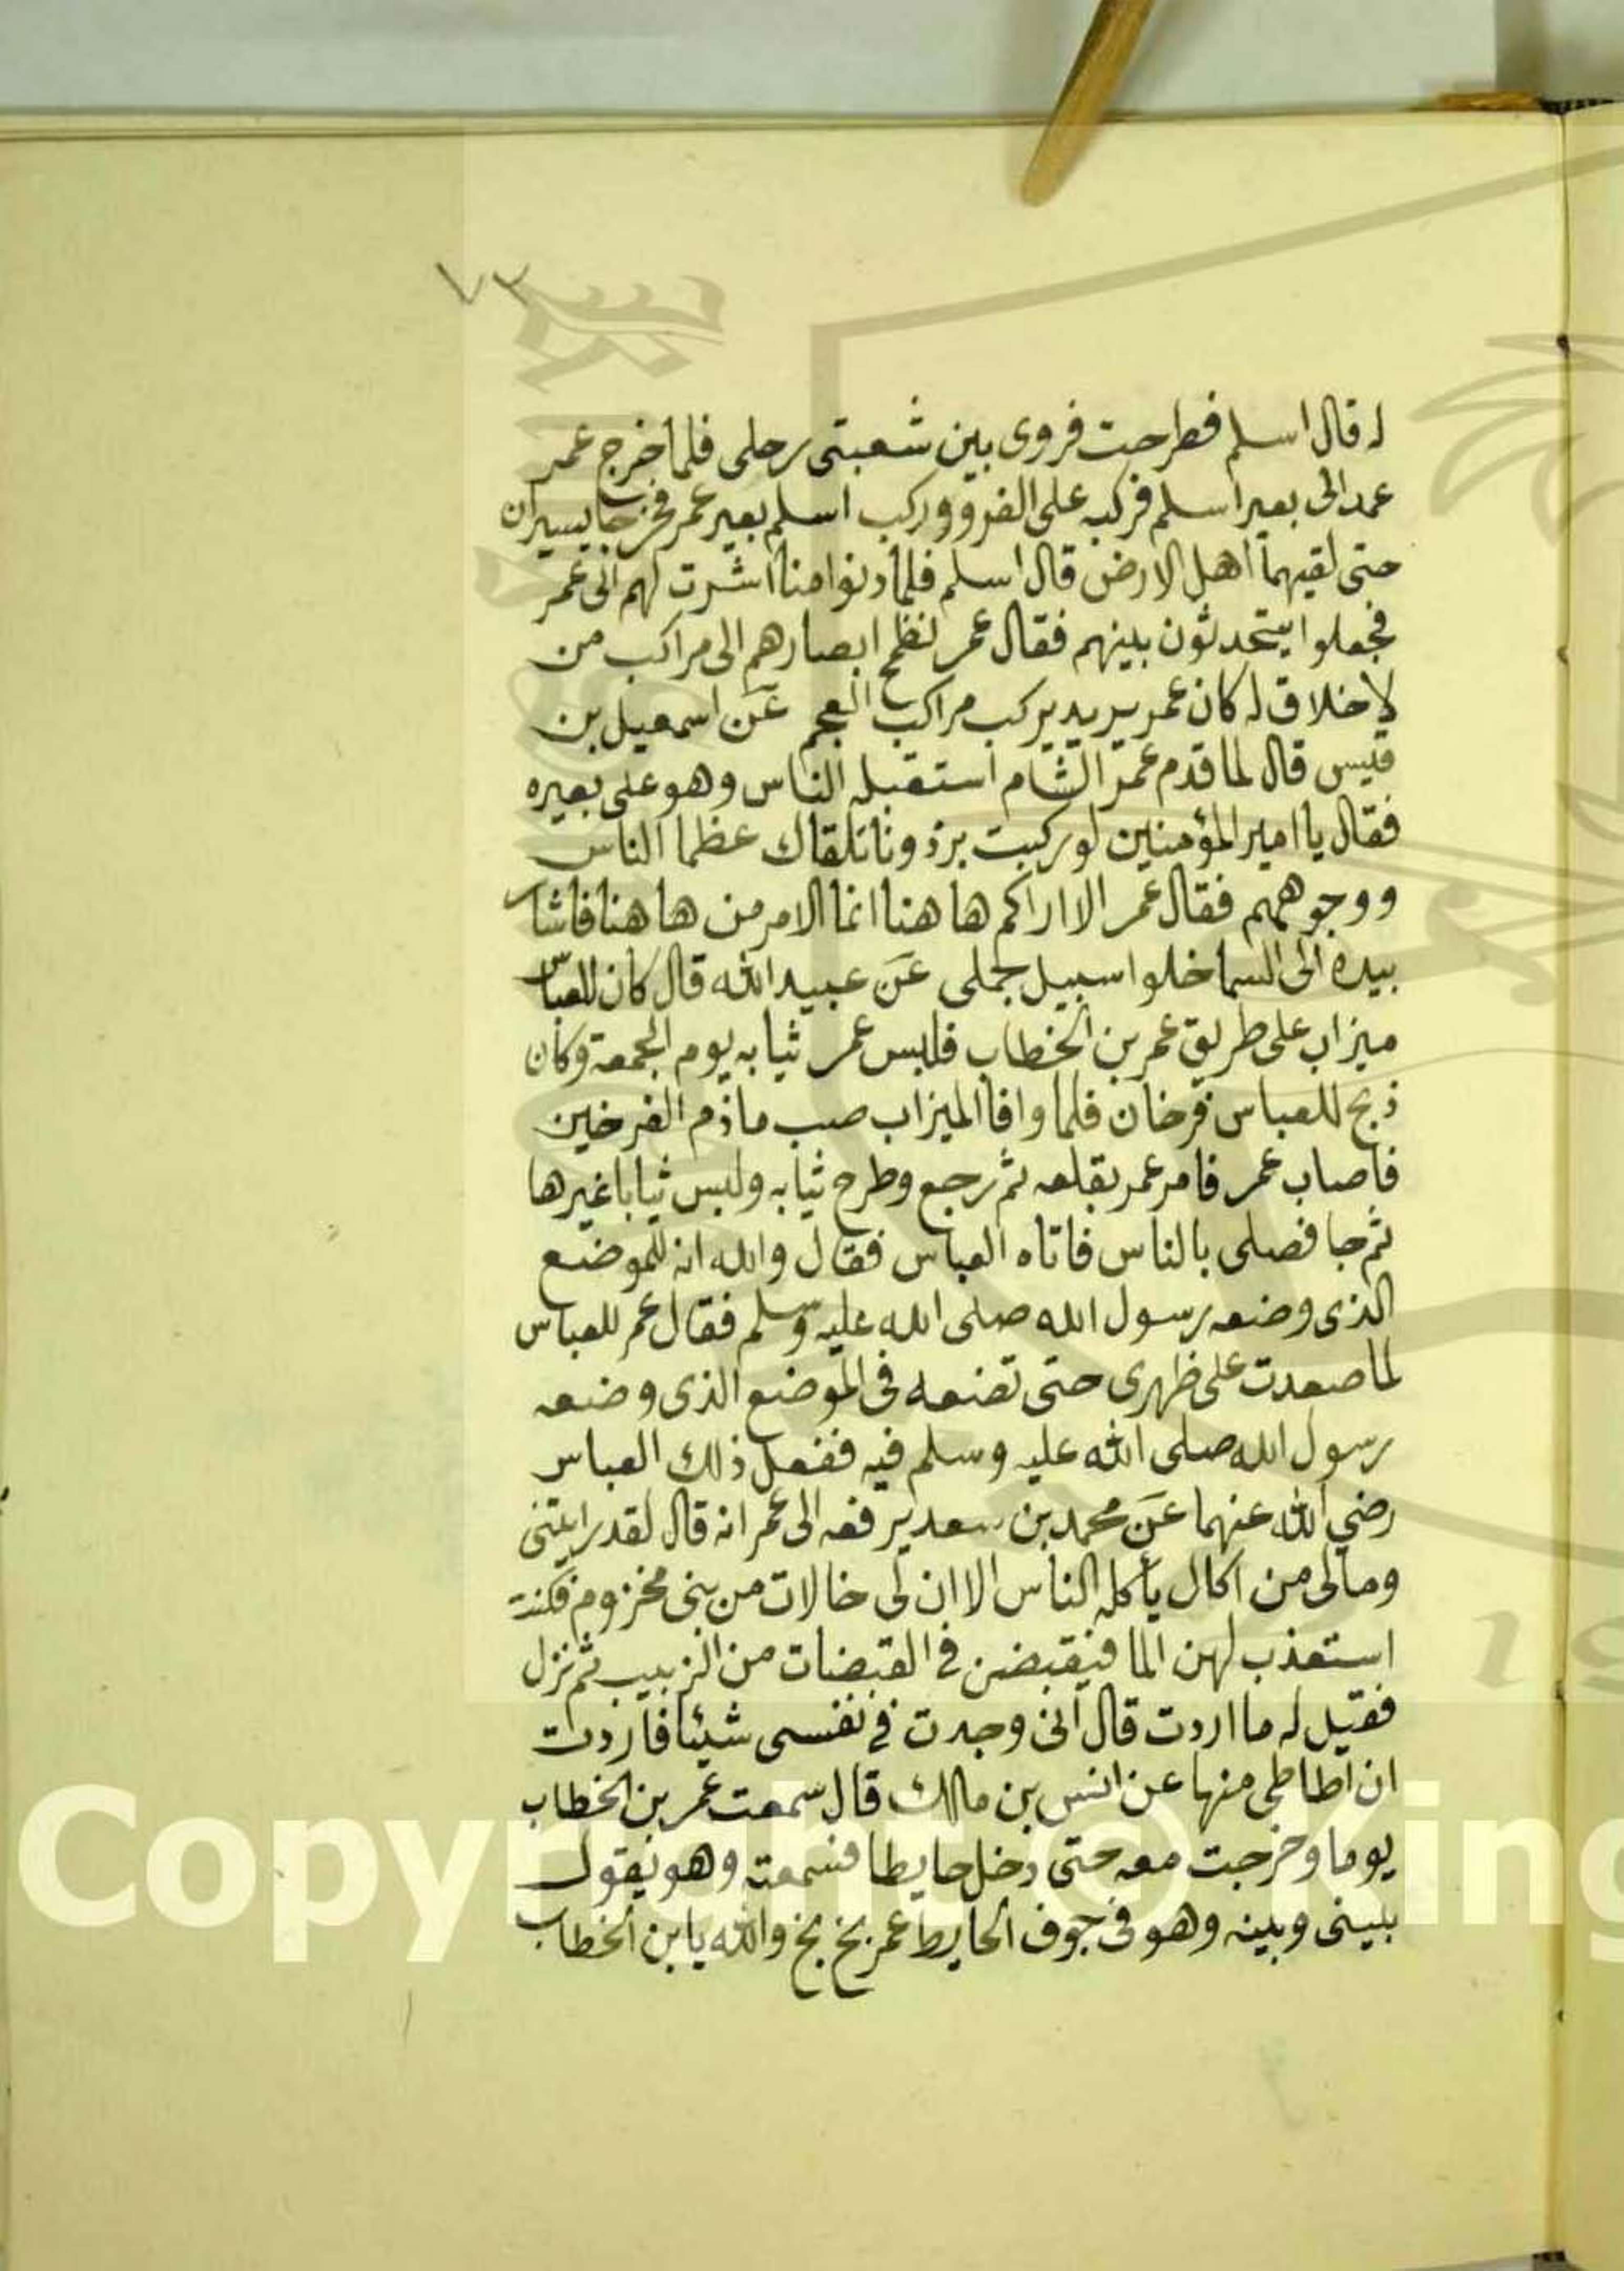 ٧٣
له قال اسلم فطرحت فروى بين شعبتى رحلى فلما خرج عمر
عمد الى بعير اسلم فركبه على الفرو وركب اسلم بعير عمر فخرجا يسيران
حتى لقيهما اهل الارض قال اسلم فلما دنوا منا اشرت لهم الى عمر
فجعلوا يتحدثون بينهم فقال عمر تطمح ابصارهم الى مراكب من
لا خلاق له كان عمر يريد يركب مراكب العجم عن اسمعيل بن
قيس قال لما قدم عمر الشام استقبله الناس وهو على بعيره
فقال يا امير المؤمنين لو ركبت برذونا تلقاك عظما الناس
ووجوههم فقال عمر الا اراكم ها هنا انما الامر من ها هنا فاشار
بيده الى السما خلوا سبيل جملى عن عبيد الله قال كان للعباس
ميزاب على طريق عمر بن الخطاب فلبس عمر ثيابه يوم الجمعة وكان
ذبح للعباس فرخان فلما وافا الميزاب صب ما دم الفرخين
فاصاب عمر فامر عمر بقلعه ثم رجع وطرح ثيابه ولبس ثيابا غيرها
ثم جا فصلى بالناس فاتاه العباس فقال والله انه للموضع
الذى وضعه رسول الله صلى الله عليه وسلم فقال عمر للعباس
لما صعدت على ظهرى حتى تضعه فى الموضع الذى وضعه
رسول الله صلى الله عليه وسلم فيه ففعل ذلك العباس
رضي الله عنهما عن محمد بن سعد يرفعه الى عمر انه قال لقد رايتنى
ومالى من اكال يأكله الناس الا ان لى خالات من بنى مخزوم فكنت
استعذب لهن الما فيقبضن فى القبضات من الزبيب ثم نزل
فقيل له ما اردت قال انى وجدت فى نفسى شيئا فاردت
ان اطاطى منها عن انس بن مالك قال سمعت عمر بن الخطاب
يوما وخرجت معه حتى دخل حايطا فسمعته وهو يقول
بينى وبينه وهو فى جوف الحايط عمر بخ بخ والله يا بن الخطاب
Copyright © King